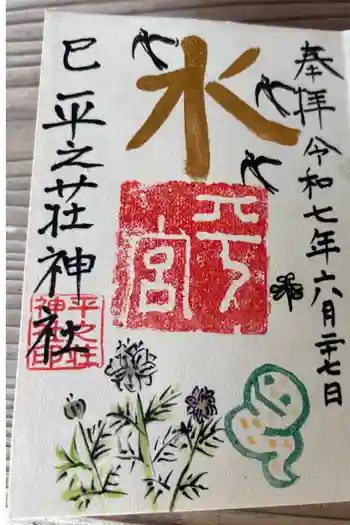 奉拝 令和七年六月二十七日
水
平宮
巳 平之荘神社
平之荘
神社印